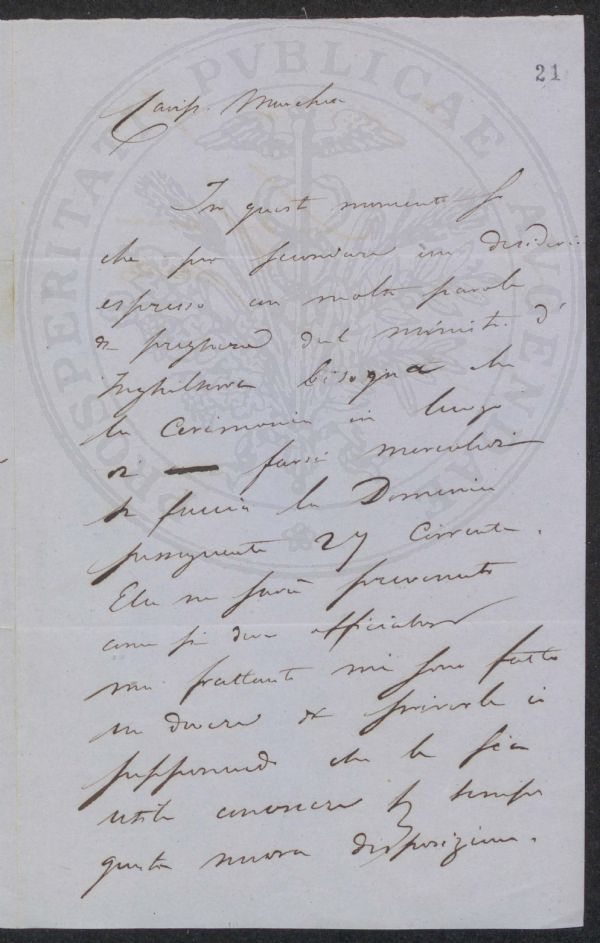 21
PROSPERITATI PVBLICAE AVGENDAE
Cariss. Marchese
In questo momento so
che per secondare un desideri
espresso con molte parole
di preghiera dal ministro d'
Inghilterra bisogna che
la Cerimonia in luogo
di farsi mercoledì
si faccia la Domenica
susseguente 27 Corrente.
Ella ne sarà prevenuto
come si deve
ma frattanto mi sono fatto
un dovere di scriverle
supponendo che le sia
utile conoscere tempo
questa nuova disposizione.